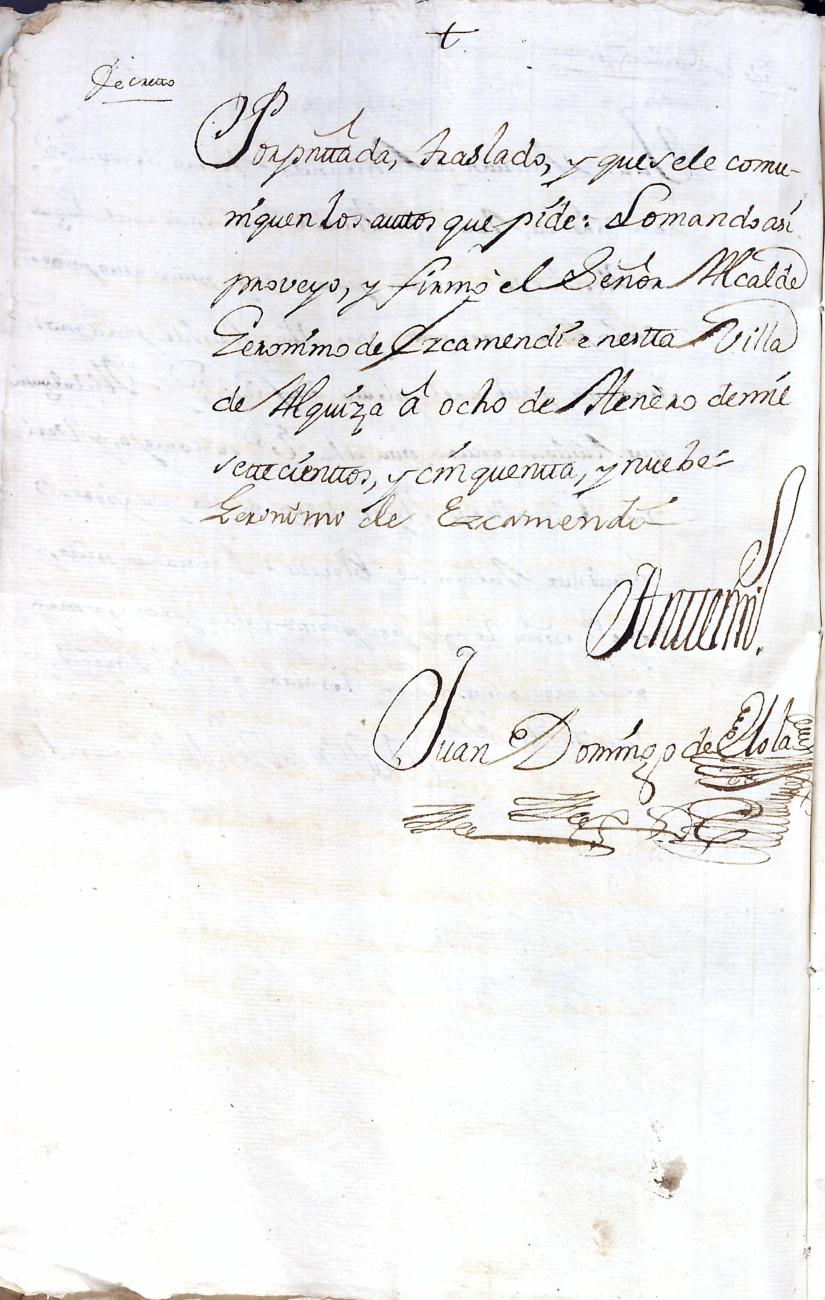 +
Decretto
Por pnttada, traslado, y que se le comu-
niquen los auttos que pide: Lo mando así
proveyo, y firmó el Señor Alcalde
Geronimo de Ezcamendi en estta Villa
de Alquiza á ocho de Henèro de mil
settecienttos, y cinquentta, y nuebe=
Geronimo de Ezcamendi
Antemi.
Juan Domingo de Elola